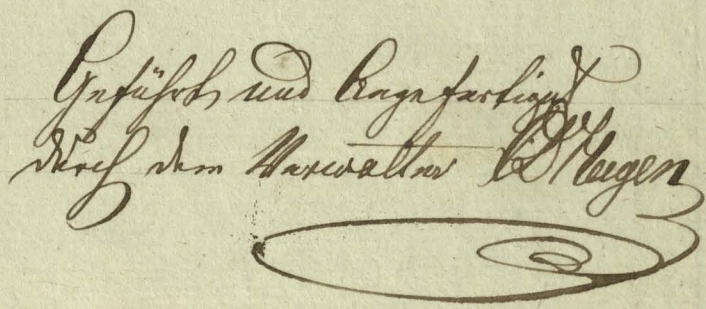 Geführt und Angefertigt
durch den Verwalter Hagen